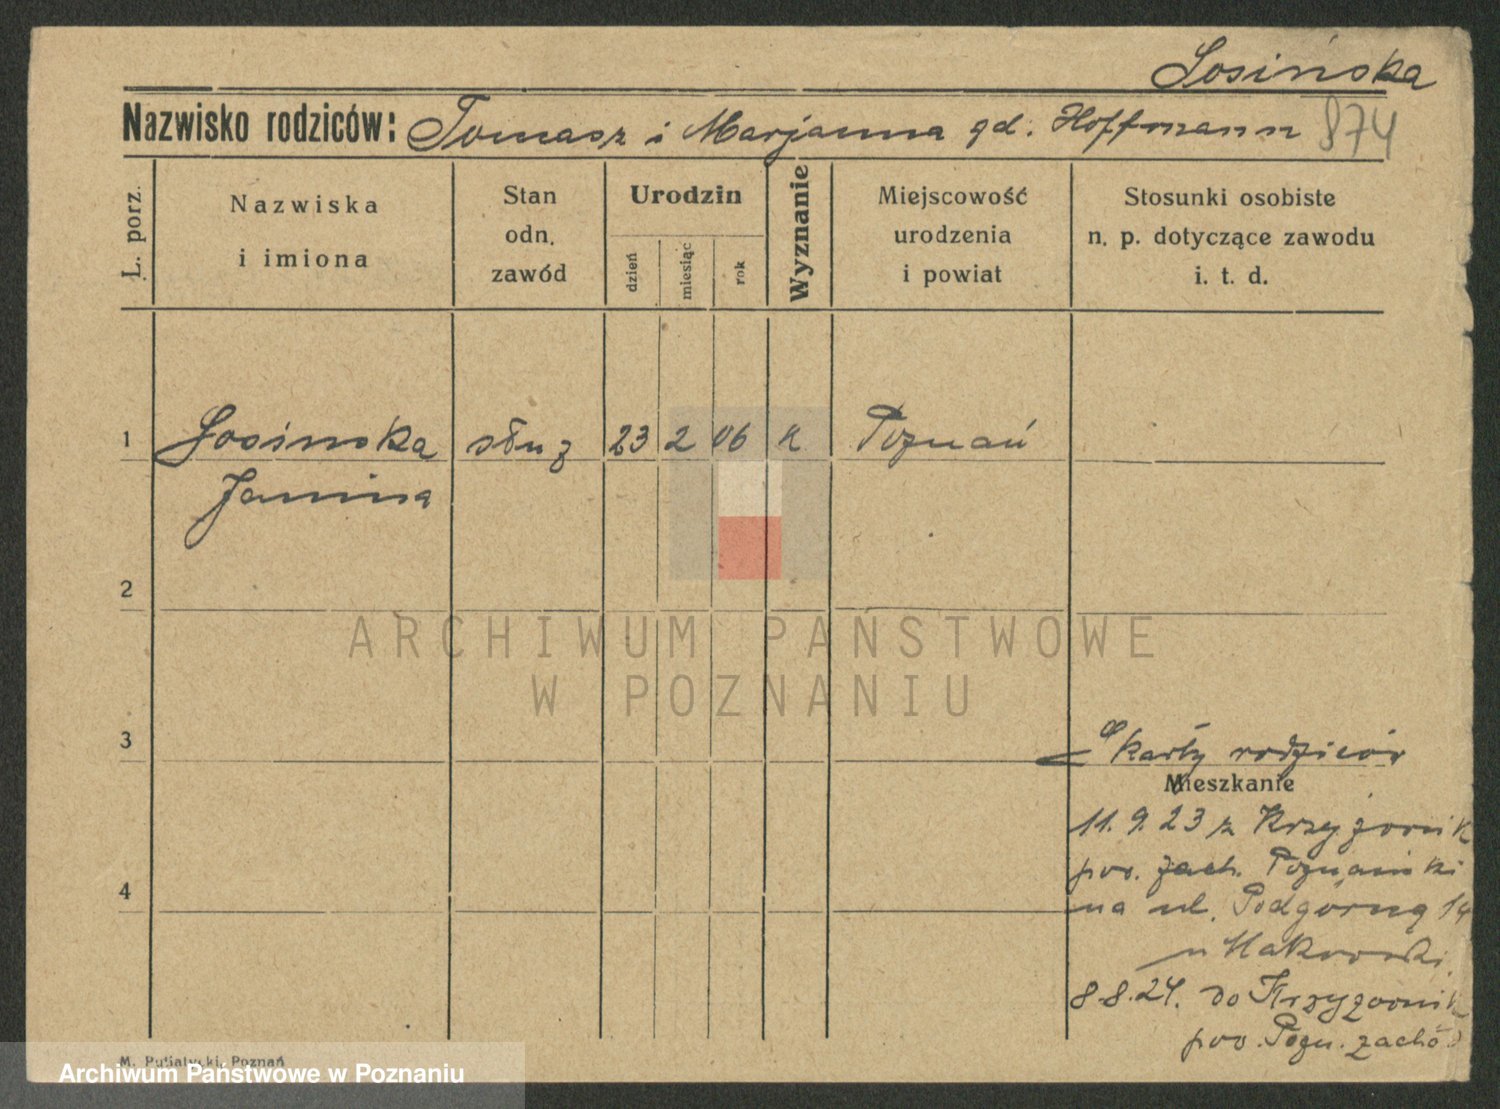 Łosińska
Nazwisko rodziców: Tomasz i Marjanna gd. Hoffmann 874
L. porz.
Nazwiska
i imiona
Stan
odn.
zawód
Urodzin
dzień
miesiąc
rok
Wyznanie
Miejscowość
urodzenia
i powiat
Stosunki osobiste
n. p. dotyczące zawodu
i. t. d.
1 Łosińska służ 23 2 06 k Poznań
Janina
2
ARCHIWUM PAŃSTWOWE
W POZNANIU
3
karty rodziców
Mieszkanie
11. 9. 23 z Krzyżownik
pow. zach. Poznański
na ul. Podgórną 14
u Makowski
4
8.8.24. do Krzyżownik
pow. Pozn. zachód
M. Putiatycki, Poznań
Archiwum Państwowe w Poznaniu